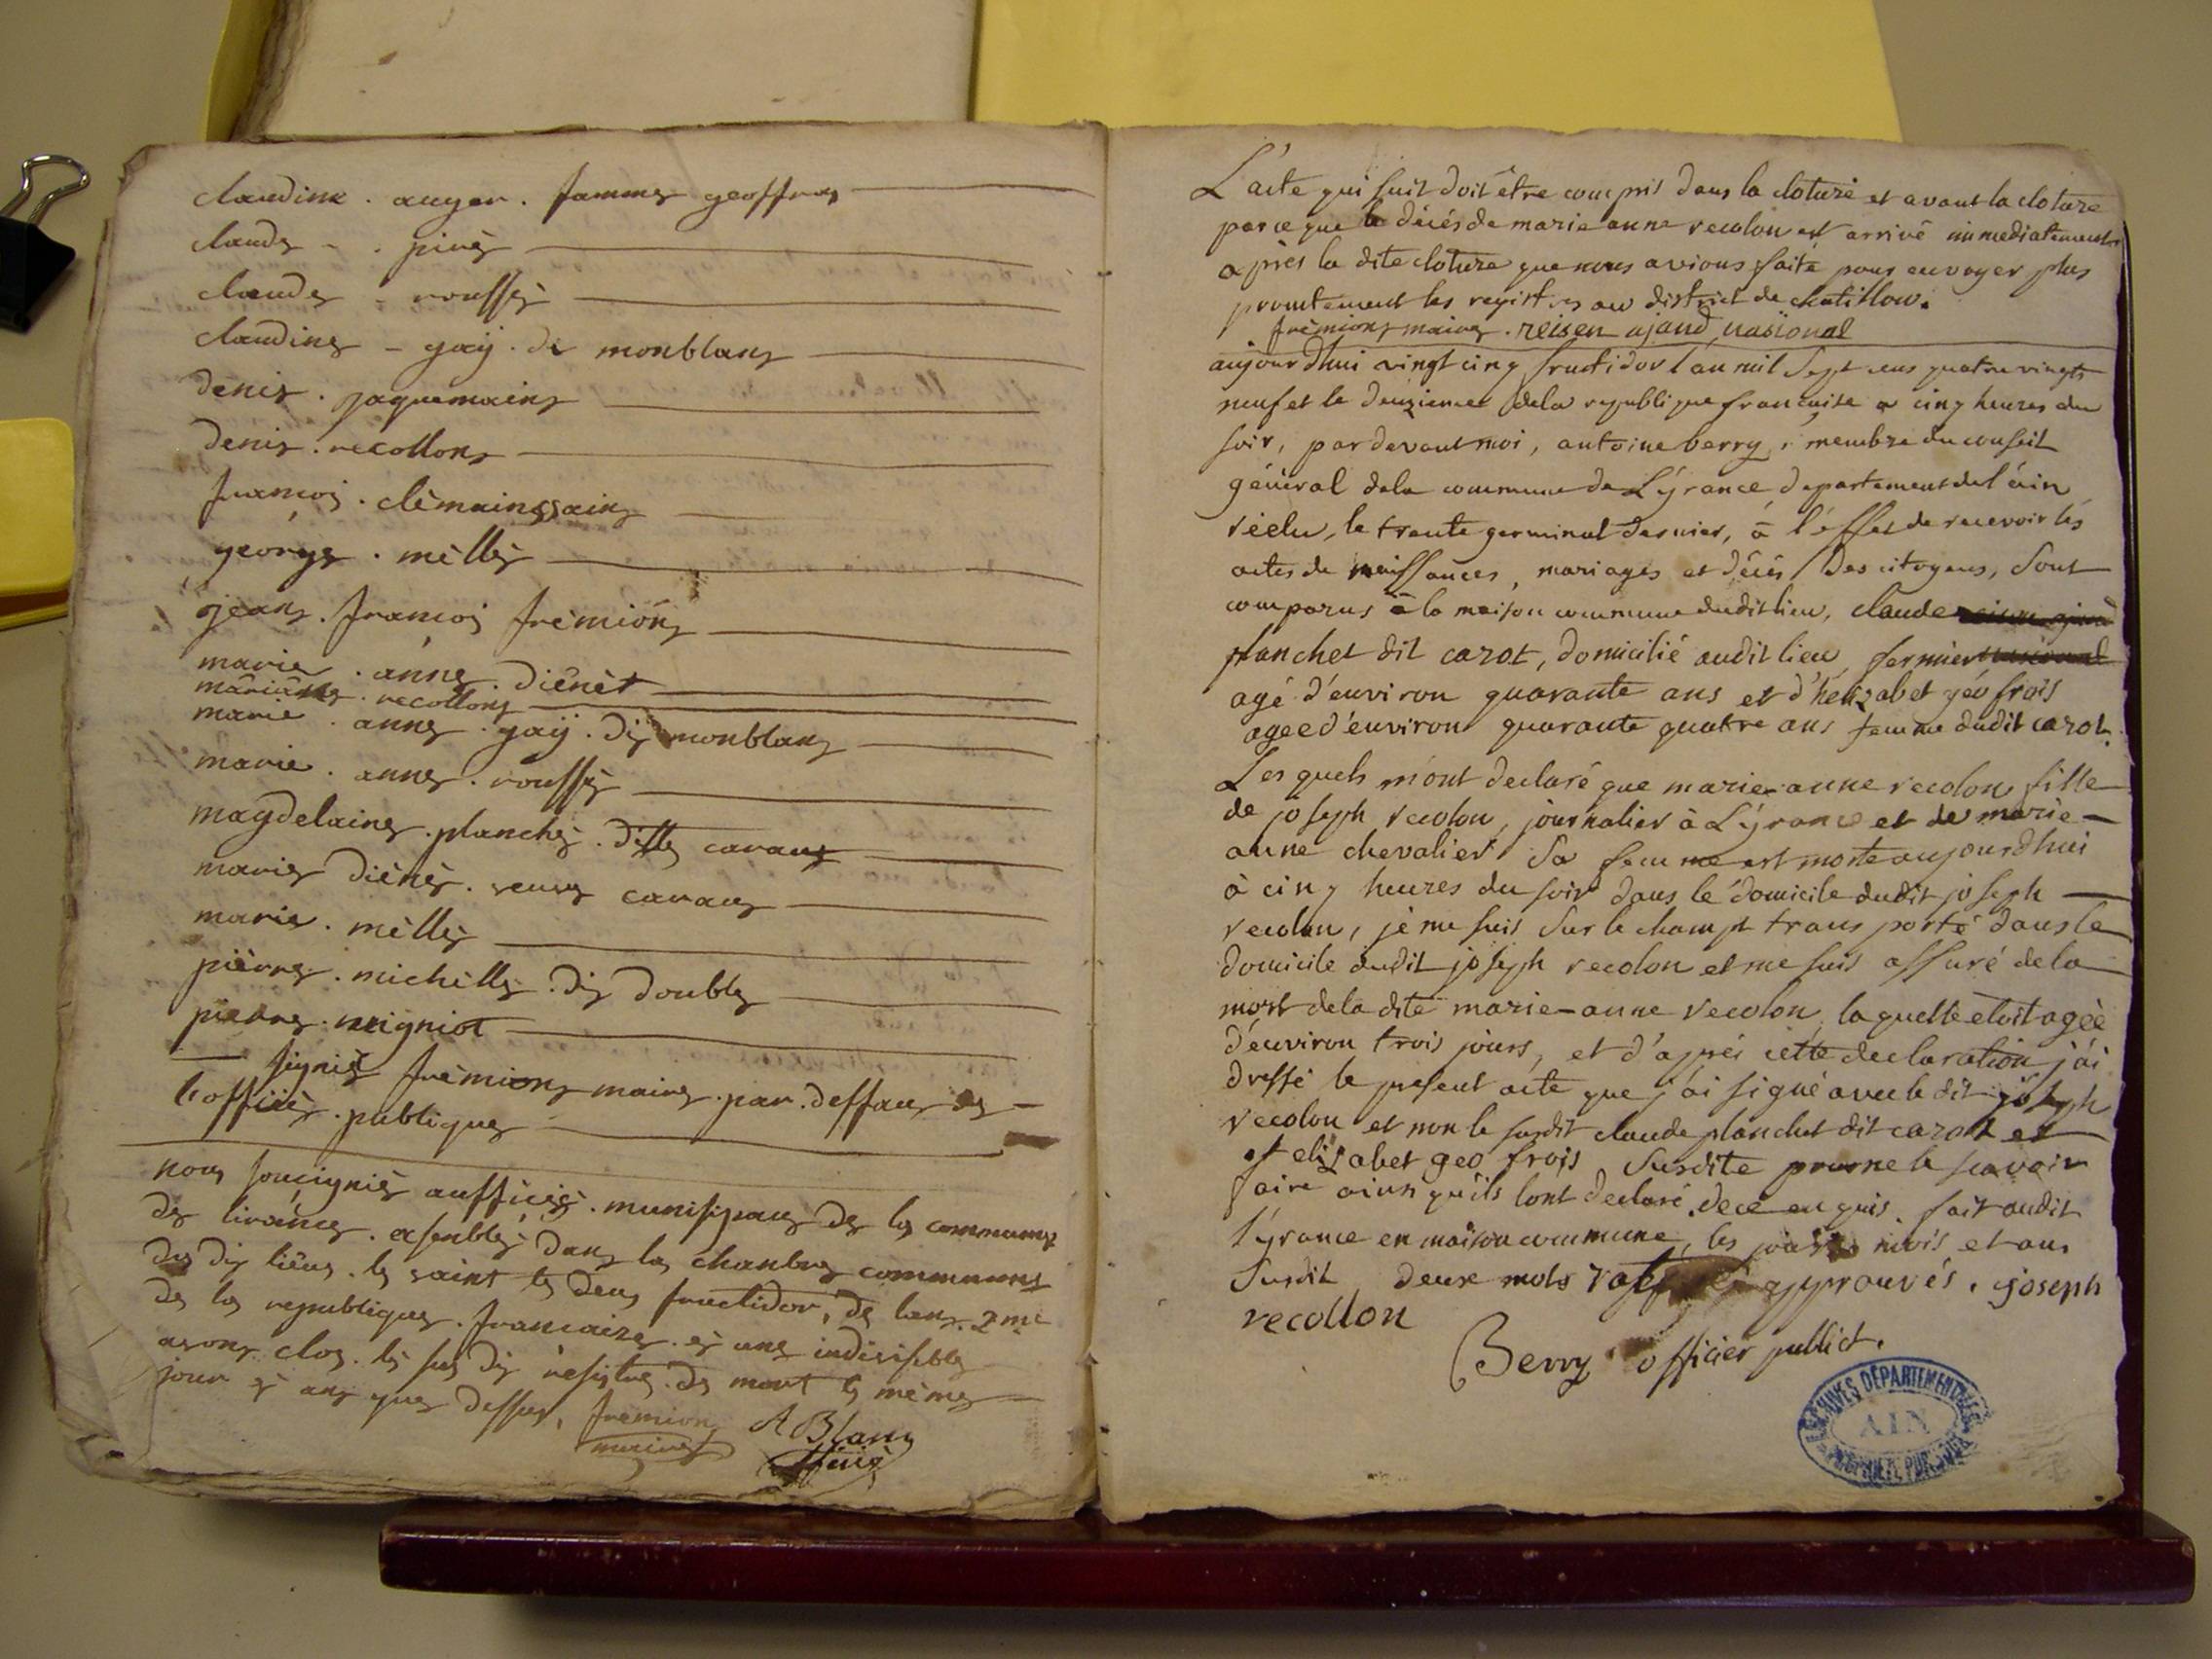 claudine . auger . famme geoffray
claude - . piné
claude - roussé
claudine - gaÿ . di monblanc
denis . jaquemain
denis . recollon
francoi . clèmain
george . mèllé
jean . francoi frèmion
marie . anne . diénèt
mariane . recollon
marie . anne . gaÿ . di monblanc
marie . anne . roussé
magdelaine . planché . ditte carau
marie diénè . veuve carau
marie . mèllé
pièrre . michèlle . di double
pierre . migniot
signié frèmion maire . par . deffau de
l'officié . publique
nous soucignié aufficié . munisipau de la commune
de lirance . asenblé dans la chanbre commune
du di lieu . le vaint de deu fructidor, de lan . 2me
de la republique . francaize . é une indivisible
avons clos . lé sus di resistre . de mort le même
jour é ans que dessus, fremion A Blanc
maire officié
L'acte qui suit doit être compris dans la cloture et avant la cloture
parce que le décés de marie anne recolon est arrivé immediatement
après la dite cloture que nous avions faite pour envoyer plus
promtement les registres au district de chatillon.
frèmion maire . reisen ajand nasional
aujourdhui vingt cinq fructidor l'an mil sept cens quatre vingts
neuf et le deuzieme de la republique francaise a cinq heures du
soir, par devant moi, antoine berry, membre du conseil
général de la commune de Lÿrance departement de l'ain
réelu, le trente germinal dernier, à l'effet de recevoir les
actes de naissances, mariages et décés des citoyens, sont
comparus à la maison commune dudit lieu, claude
planchet dit carot, domicilié audit lieu, fermier
agé d'environ quarante ans et d'hélizabet géofrois
agee d'environ quarante quatre ans femme dudit carot.
Les quels m'ont declaré que marie-anne recolon fille
de joseph recolon, journalier à Lÿrance et de marie-
anne chevalier sa femme est morte aujourdhui
à cinq heures du soir dans le domicile dudit joseph
recolon, je me suis sur le champt transporté dans le
domicile dudit joseph recolon et me suis assuré de la
mort de la dite marie-anne recolon, laquelle etoit agée
d'environ trois jours, et d'après cette declaration j'ai
dressé le present acte que j'ai signé avec le dit joseph
recolon et non le susdit claude planchet dit carot et
et elizabet geofrois susdite pour ne le scavoir
faire ainsi qu'ils l'ont declaré . de ce enquis . fait audit
lÿrance en maison commune, les jours mois et ans
susdit deux mots approuvés . joseph
recollon
Berry officier publict.
ARCHIVES DÉPARTEMENTALES
AIN
PROPRIÉTÉ PUBLIQUE